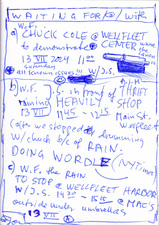 WRITING FOR &/ with
W.F.
a) CHUCK COLE @ WELLFLEET
to demonstrate CENTER &
13 VII 2024 11:00
saturday
all known issues W/J.S.
b) W.F. J.S. in front of THRIFT
raining HEAVILY SHOP
13 VII 11:45 - 12:15 Main St.
(after we stopped drumming Wellfleet
w/ chuck b/c of RAIN.
DOING WORDLE (NYT
c) W.F. THE RAIN
TO STOP @ WELLFLEET HARBOR
W/J.S. @ MAC'S
outside under umbrellas
13 VII